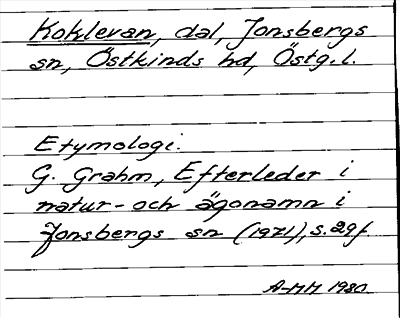 Koklevan, dal, Jonsbergs
sn, Östkinds hd, Östg.l.
Etymologi.
G. Grahm, Efterleder i
natur- och ägonamn i
Jonsbergs sn (1971), s. 29f.
A-MH 1980